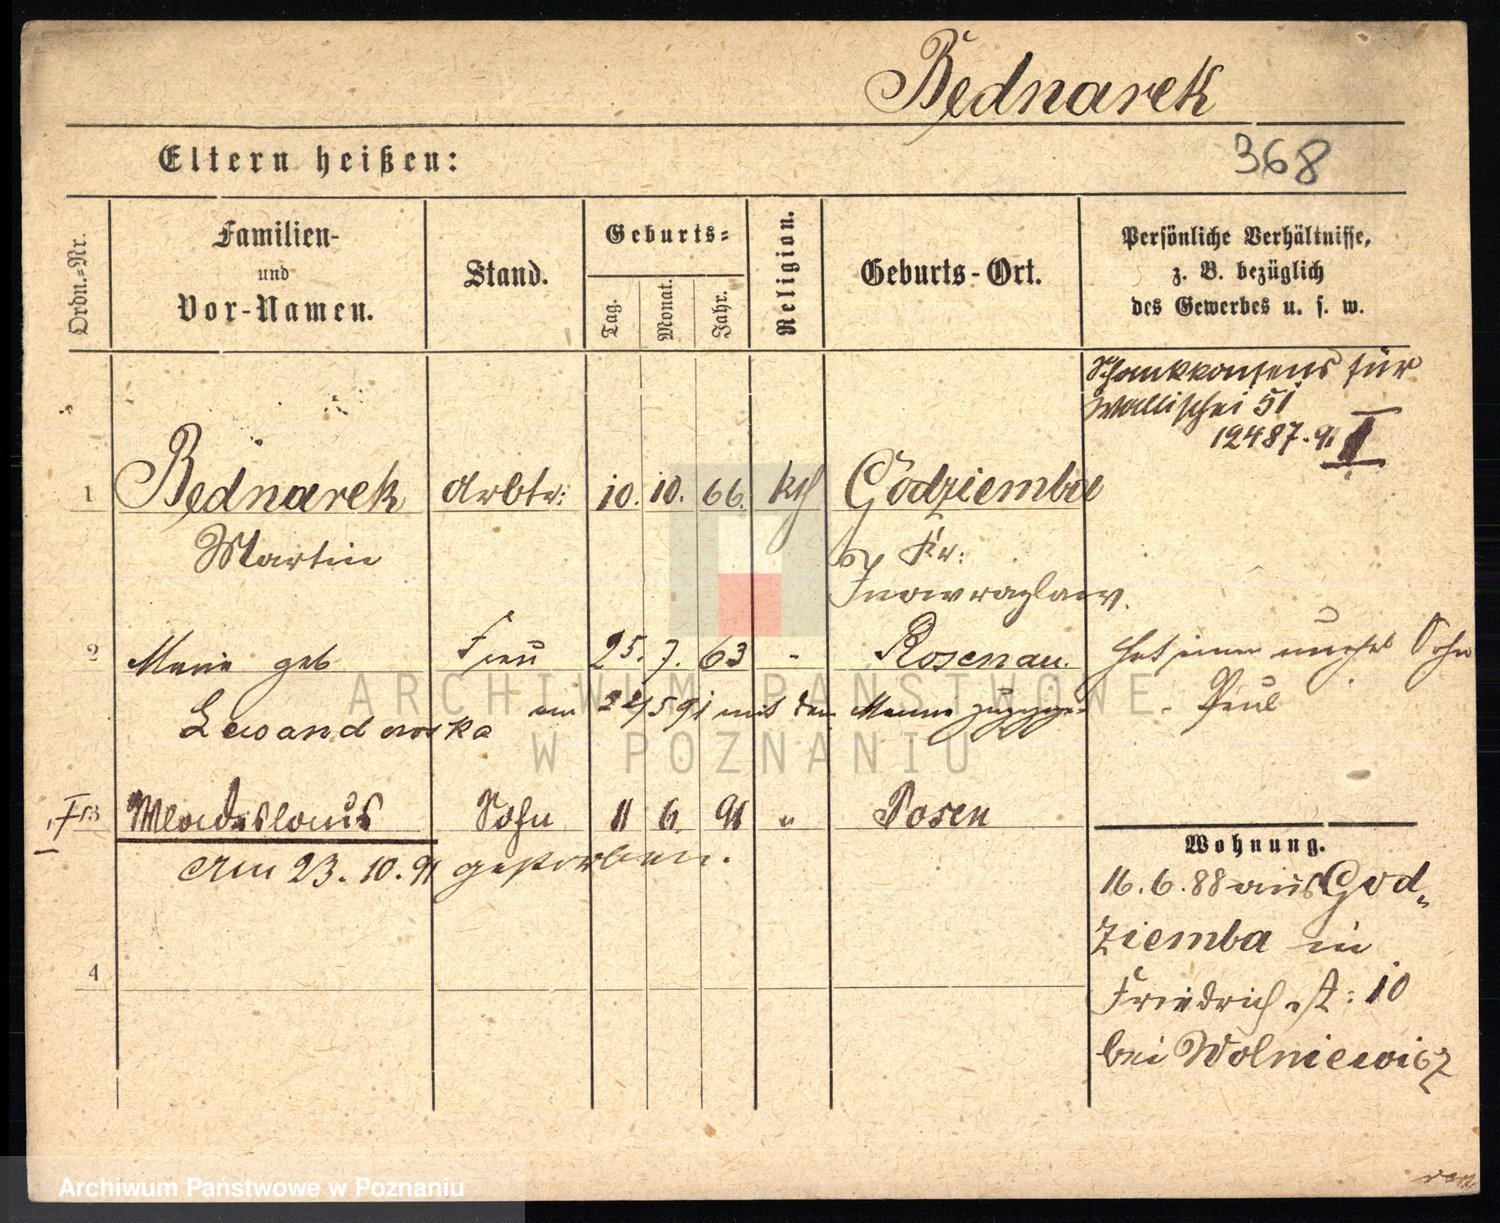 Bednarek
Eltern heißen:
368
Ordn.-Nr.
Familien-
und
Vor-Namen.
Stand.
Geburts-
Tag.
Monat.
Jahr.
Religion.
Geburts-Ort.
Persönliche Verhältnisse,
z. B. bezüglich
des Gewerbes u. s. w.
Schankkonsens für
Wallischei 51
12487.91 II
1 Bednarek Arbtr: 10. 10. 66. kth Godziemba
Martin Kr:
Inowrazlaw.
2 Marie geb Frau 25. 7. 63 - Rosenau. hat einen unehel Sohn
Lewandowska am 22/5 91 mit dem Manne zugezogen - Paul
†13 Wladislaus Sohn 11 6. 91 " Posen
Am 23. 10. 91 gestorben.
4
Wohnung.
16. 6. 88 aus God-
ziemba in
Friedrich st: 10
bei Wolniewicz
ARCHIWUM PAŃSTWOWE
W POZNANIU
Archiwum Państwowe w Poznaniu